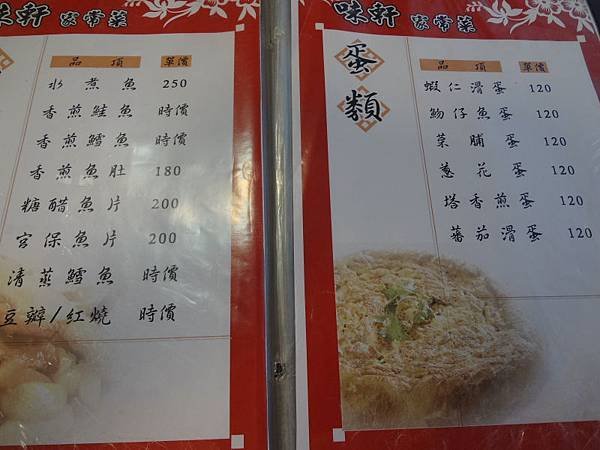 味軒 家常菜
品項 單價
水煮魚 250
香煎鮭魚 時價
香煎鱈魚 時價
香煎魚肚 180
糖醋魚片 200
宮保魚片 200
清蒸鱈魚 時價
豆瓣/紅燒 時價
味軒 家常菜
蛋類
品項 單價
蝦仁滑蛋 120
魩仔魚蛋 120
菜脯蛋 120
蔥花蛋 120
塔香煎蛋 120
蕃茄滑蛋 120